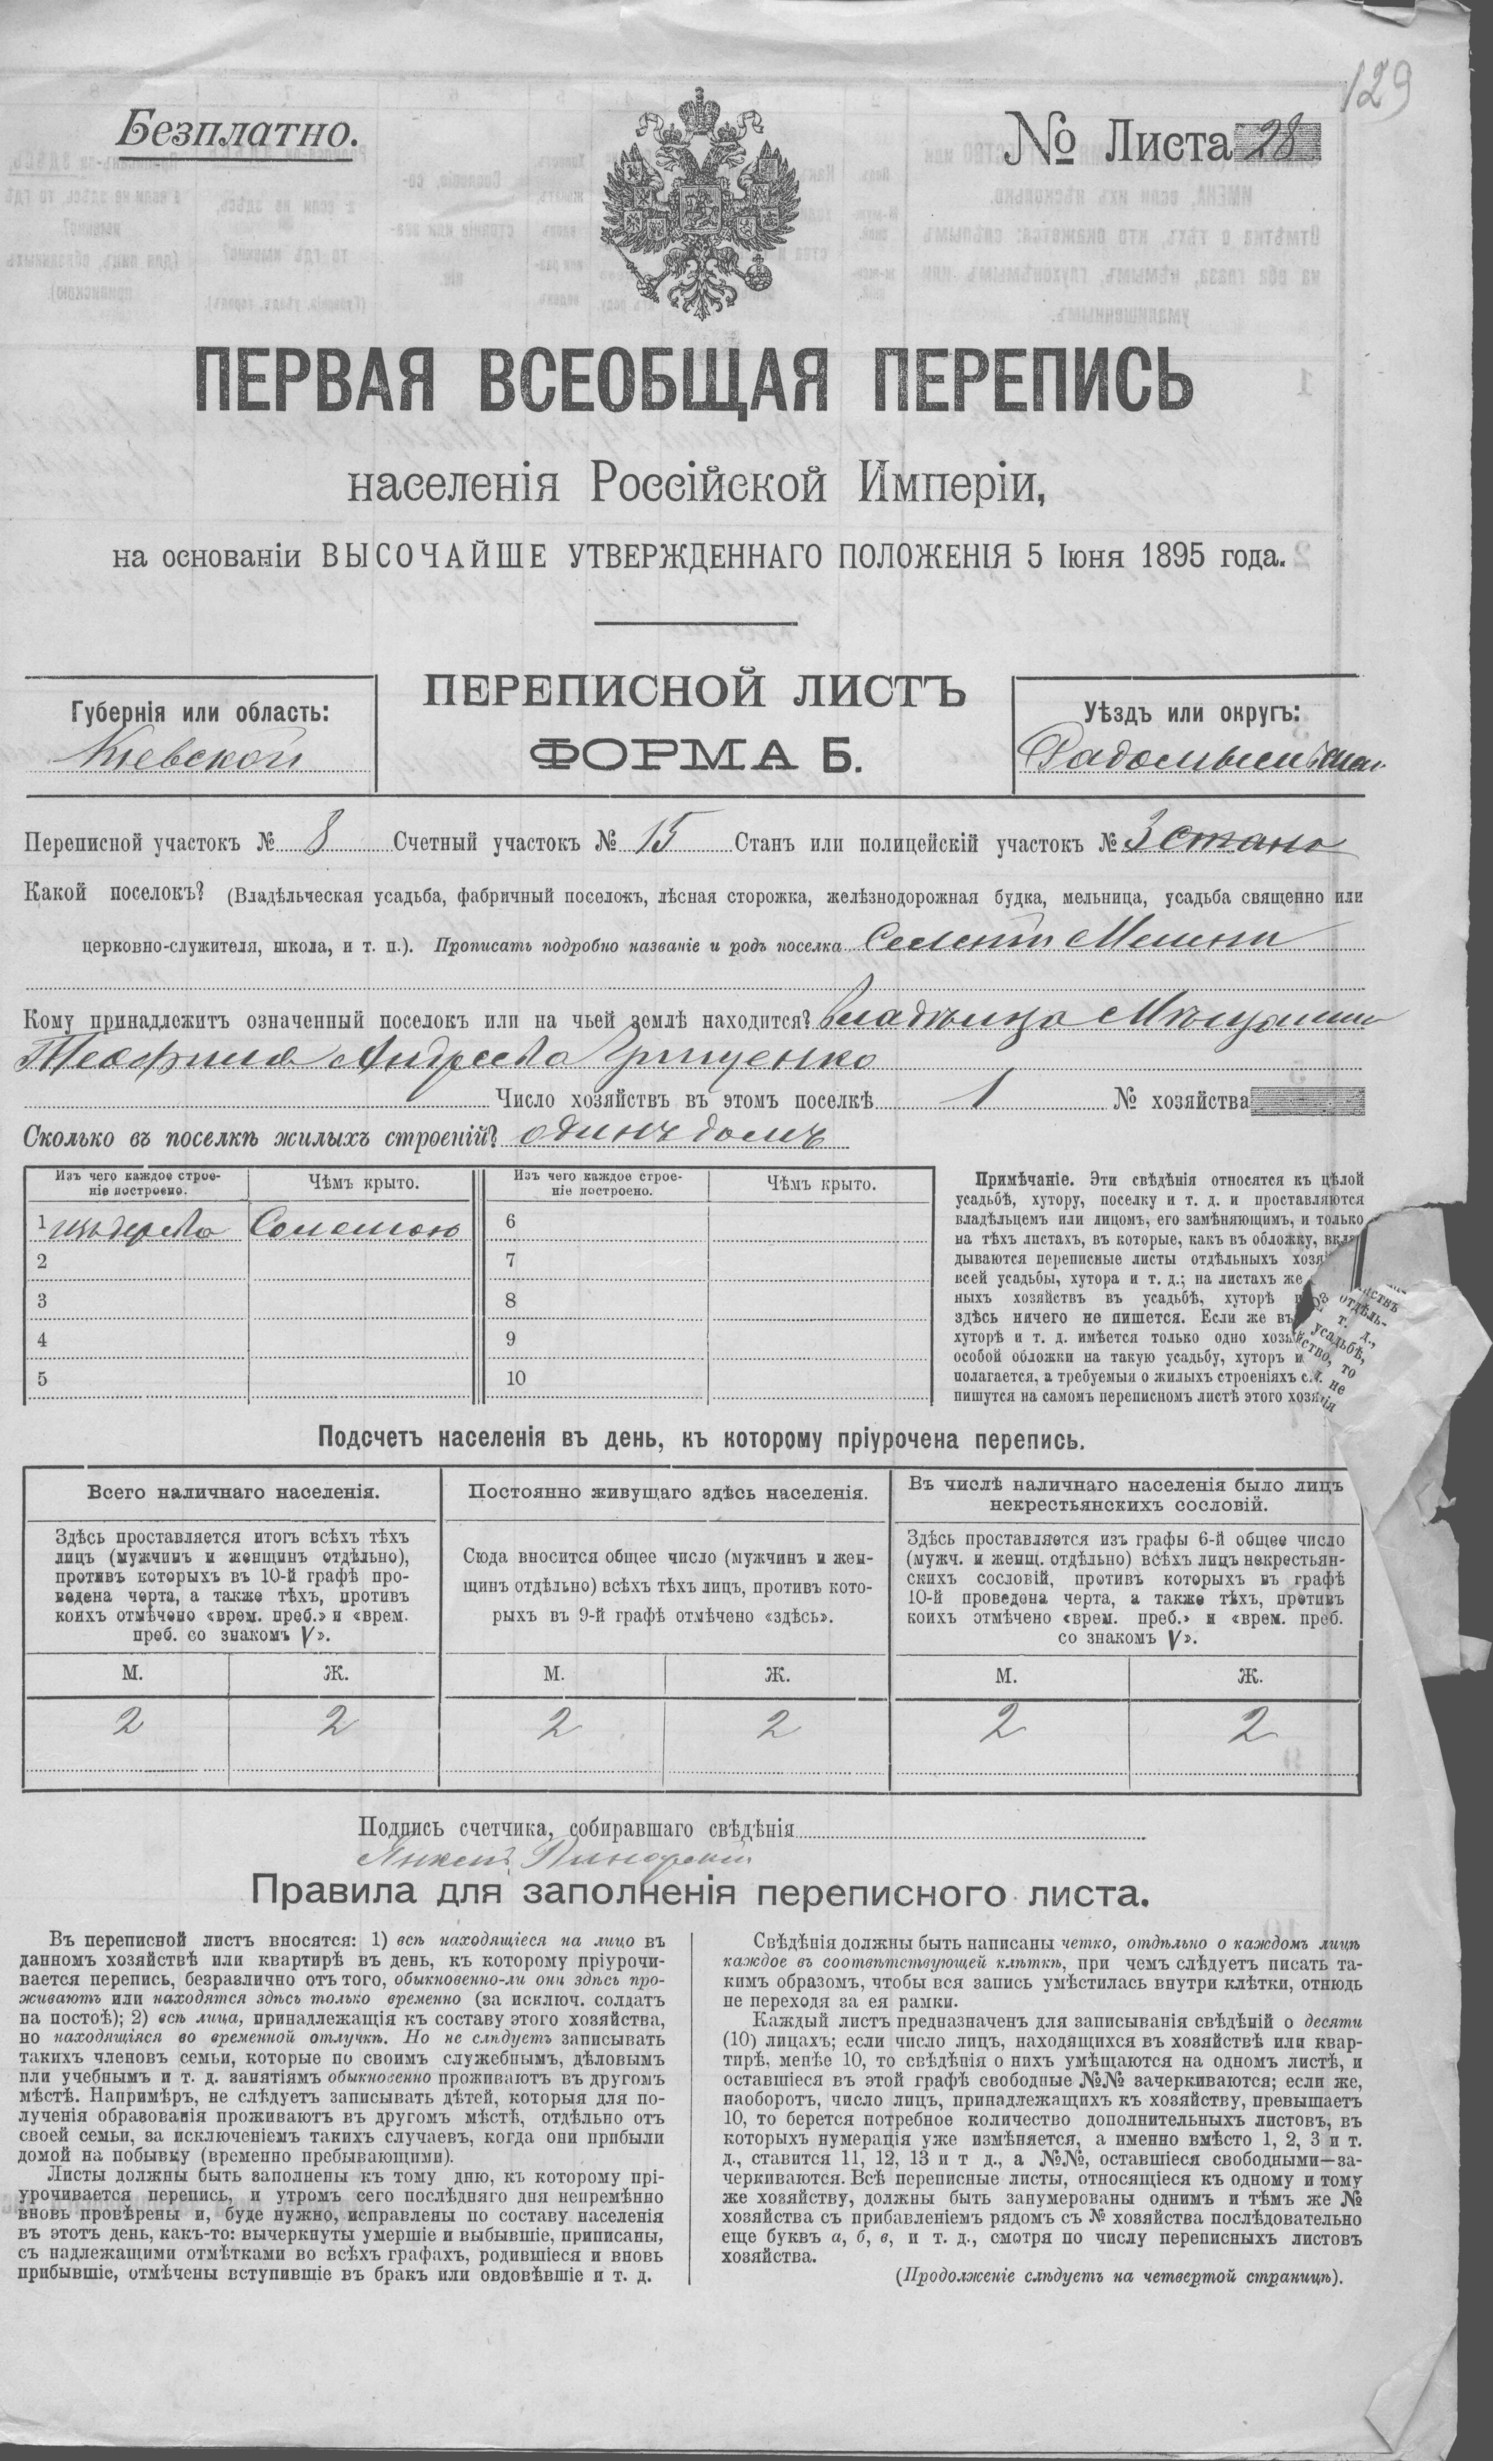 129
Безплатно.
№ Листа 28
ПЕРВАЯ ВСЕОБЩАЯ ПЕРЕПИСЬ
населенія Россійской Имперіи,
на основаніи ВЫСОЧАЙШЕ УТВЕРЖДЕННАГО ПОЛОЖЕНІЯ 5 Іюня 1895 года.
ПЕРЕПИСНОЙ ЛИСТЪ
ФОРМА Б.
Губернія или область:
Кіевской
Уѣздъ или округъ:
Переписной участокъ № 8 Счетный участокъ № 15 Станъ или полицейскій участокъ № 3 стано
Какой поселокъ? (Владѣльческая усадьба, фабричный поселокъ, лѣсная сторожка, желѣзнодорожная будка, мельница, усадьба священно или
церковно-служителя, школа, и т. п.). Прописать подробно названіе и родъ поселка
Кому принадлежитъ означенный поселокъ или на чьей землѣ находится?
Грищенко
Число хозяйствъ въ этомъ поселкѣ 1 № хозяйства
Сколько въ поселкѣ жилыхъ строеній? одинъ домъ
Изъ чего каждое строе-
ніе построено.
Чѣмъ крыто.
Изъ чего каждое строе-
ніе построено.
Чѣмъ крыто.
1 изъ дерева Соломою
2
3
4
5
6
7
8
9
10
Примѣчаніе. Эти свѣдѣнія относятся къ цѣлой
усадьбѣ, хутору, поселку и т. д. и проставляются
владѣльцемъ или лицомъ, его замѣняющимъ, и только
на тѣхъ листахъ, въ которые, какъ въ обложку, вкла-
дываются переписные листы отдѣльныхъ хозяйствъ
всей усадьбы, хутора и т. д.; на листахъ же отдѣль-
ныхъ хозяйствъ въ усадьбѣ, хуторѣ и т. д.,
здѣсь ничего не пишется. Если же въ усадьбѣ,
хуторѣ и т. д. имѣется только одно хозяйство, то
особой обложки на такую усадьбу, хуторъ и т. д. не
полагается, а требуемыя о жилыхъ строеніяхъ
пишутся на самомъ переписномъ листѣ этого
Подсчетъ населенія въ день, къ которому пріурочена перепись.
Всего наличнаго населенія.
Здѣсь проставляется итогъ всѣхъ тѣхъ
лицъ (мужчинъ и женщинъ отдѣльно),
противъ которыхъ въ 10-й графѣ про-
ведена черта, а также тѣхъ, противъ
коихъ отмѣчено «врем. преб.» и «врем.
преб. со знакомъ V».
М. Ж.
2 2
Постоянно живущаго здѣсь населенія.
Сюда вносится общее число (мужчинъ и жен-
щинъ отдѣльно) всѣхъ тѣхъ лицъ, противъ кото-
рыхъ въ 9-й графѣ отмѣчено «здѣсь».
М. Ж.
2 2
Въ числѣ наличнаго населенія было лицъ
некрестьянскихъ сословій.
Здѣсь проставляется изъ графы 6-й общее число
(мужч. и женщ. отдѣльно) всѣхъ лицъ некрестьян-
скихъ сословій, противъ которыхъ въ графѣ
10-й проведена черта, а также тѣхъ, противъ
коихъ отмѣчено «врем. преб.» и «врем. преб.
со знакомъ V».
М. Ж.
2 2
Подпись счетчика, собиравшаго свѣдѣнія
Правила для заполненія переписного листа.
Въ переписной листъ вносятся: 1) всѣ находящіеся на лицо въ
данномъ хозяйствѣ или квартирѣ въ день, къ которому пріурочи-
вается перепись, безразлично отъ того, обыкновенно-ли они здѣсь про-
живаютъ или находятся здѣсь только временно (за исключ. солдатъ
на постоѣ); 2) всѣ лица, принадлежащія къ составу этого хозяйства,
но находящіяся во временной отлучкѣ. Но не слѣдуетъ записывать
такихъ членовъ семьи, которые по своимъ служебнымъ, дѣловымъ
или учебнымъ и т. д. занятіямъ обыкновенно проживаютъ въ другомъ
мѣстѣ. Напримѣръ, не слѣдуетъ записывать дѣтей, которыя для по-
лученія образованія проживаютъ въ другомъ мѣстѣ, отдѣльно отъ
своей семьи, за исключеніемъ такихъ случаевъ, когда они прибыли
домой на побывку (временно пребывающими).
Листы должны быть заполнены къ тому дню, къ которому прі-
урочивается перепись, и утромъ сего послѣдняго дня непремѣнно
вновь провѣрены и, буде нужно, исправлены по составу населенія
въ этотъ день, какъ-то: вычеркнуты умершіе и выбывшіе, приписаны,
съ надлежащими отмѣтками во всѣхъ графахъ, родившіеся и вновь
прибывшіе, отмѣчены вступившіе въ бракъ или овдовѣвшіе и т. д.
Свѣдѣнія должны быть написаны четко, отдѣльно о каждомъ лицѣ
каждое въ соотвѣтствующей клѣткѣ, при чемъ слѣдуетъ писать та-
кимъ образомъ, чтобы вся запись умѣстилась внутри клѣтки, отнюдь
не переходя за ея рамки.
Каждый листъ предназначенъ для записыванія свѣдѣній о десяти
(10) лицахъ; если число лицъ, находящихся въ хозяйствѣ или квар-
тирѣ, менѣе 10, то свѣдѣнія о нихъ умѣщаются на одномъ листѣ, и
оставшіеся въ этой графѣ свободные №№ зачеркиваются; если же,
наоборотъ, число лицъ, принадлежащихъ къ хозяйству, превышаетъ
10, то берется потребное количество дополнительныхъ листовъ, въ
которыхъ нумерація уже измѣняется, а именно вмѣсто 1, 2, 3 и т.
д., ставится 11, 12, 13 и т д., а №№, оставшіеся свободными—за-
черкиваются. Всѣ переписные листы, относящіеся къ одному и тому
же хозяйству, должны быть занумерованы однимъ и тѣмъ же №
хозяйства съ прибавленіемъ рядомъ съ № хозяйства послѣдовательно
еще буквъ а, б, в, и т. д., смотря по числу переписныхъ листовъ
хозяйства.
(Продолженіе слѣдуетъ на четвертой страницѣ).